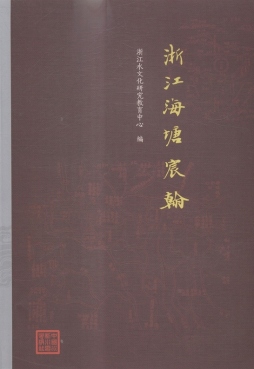 浙江海塘宸翰
浙江水文化研究教育中心 编